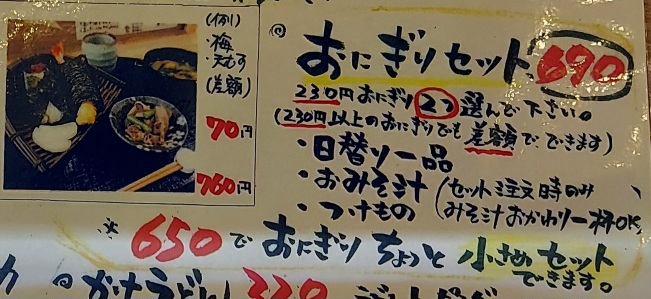 (例)
・梅
・天むす
(差額)
70円
760円
おにぎりセット 690
230円おにぎり2つ選んで下さい。
(230円以上のおにぎりでも差額でできます)
・日替り一品
・おみそ汁
・つけもの
(セット注文時のみ
みそ汁おかわり一杯OK
*650でおにぎりちょっと小さめセット
できます。
かけうどん 320